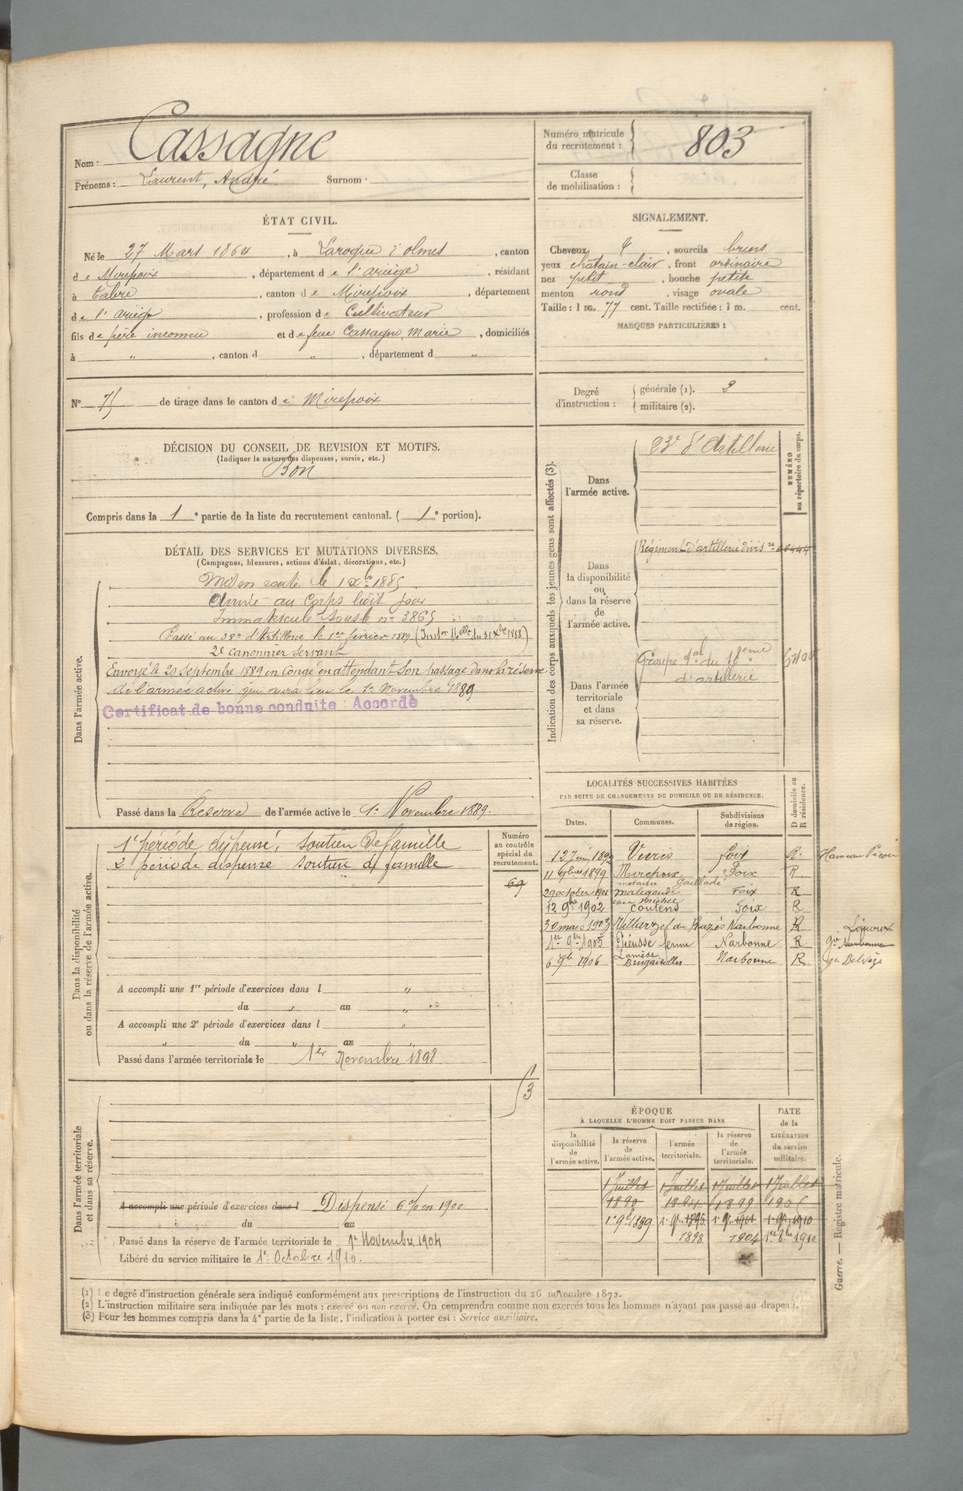 Nom : Cassagne
Prénoms : Laurent, André Surnom :
Numéro matricule du recrutement : 803
Classe de mobilisation :
ÉTAT CIVIL.
Né le 27 Mars 1864, à Laroque d'olmes, canton
de Mirepoix, département de l'ariège, résidant
à Tabre, canton de Mirepoix, département
de l'ariège, profession de Cultivateur
fils de père inconnu et de feue Cassagne, Marie, domiciliés
à " , canton d " , département d "
SIGNALEMENT.
Cheveux , sourcils bruns
yeux chatain-clair, front ordinaire
nez petit, bouche petite
menton rond, visage ovale
Taille : 1 m. 77 cent. Taille rectifiée : 1 m. cent.
MARQUES PARTICULIÈRES :
N° 75 de tirage dans le canton de Mirepoix
Degré d'instruction : générale (1). 2
militaire (2).
DÉCISION DU CONSEIL DE REVISION ET MOTIFS.
(Indiquer la nature des dispenses, sursis, etc.)
Bon
Compris dans la 1e partie de la liste du recrutement cantonal. (1e portion).
DÉTAIL DES SERVICES ET MUTATIONS DIVERSES.
(Campagnes, blessures, actions d'éclat, décorations, etc.)
Dans l'armée active.
Mis en route le 1 Xbre 1885
Arrivé au Corps ledit jour
Immatriculé sous le n° 3865
Passé au 38e d'Artillerie le 1er février 1889 (Instr. Mlle du 31 Xbre 1888)
2e canonnier servant
Envoyé le 20 Septembre 1889 en Congé en attendant son passage dans la réserve
de l'armée active qui aura lieu le 1er Novembre 1889
Certificat de bonne conduite Accordé
Passé dans la Réserve de l'armée active le 1er Novembre 1889.
Indication des corps auxquels les jeunes gens sont affectés (3).
NUMÉRO au répertoire du corps.
Dans l'armée active.
23e d'Artillerie
Dans la disponibilité ou dans la réserve de l'armée active.
Régiment d'artillerie divis
Dans l'armée territoriale et dans sa réserve.
Groupe gal du 18eme
d'artillerie
Dans la disponibilité ou dans la réserve de l'armée active.
1e période dispensé, soutien de famille
2e période dispensé soutien de famille
Numéro au contrôle spécial du recrutement.
69
A accompli une 1re période d'exercices dans l "
du " au "
A accompli une 2e période d'exercices dans l "
" du " au
Passé dans l'armée territoriale le 1er Novembre 1898
1/3
LOCALITÉS SUCCESSIVES HABITÉES
PAR SUITE DE CHANGEMENTS DE DOMICILE OU DE RÉSIDENCE.
Dates. Communes. Subdivisions de région. D domicile ou R résidence.
Foix R
11 1899 Mirepoix Foix R
29 octobre 1901 Foix R
12 9bre 1902 Coutens Foix R
30 mars 1903 Narbonne R
1er 9bre 1905 Pieusse Narbonne R
1906 Narbonne R
ÉPOQUE
À LAQUELLE L'HOMME DOIT PASSER DANS
la disponibilité de l'armée active. la réserve de l'armée active. l'armée territoriale. la réserve de l'armée territoriale.
DATE de la LIBÉRATION du service militaire.
1 Juillet 1 Juillet 1 Juillet 1 Juillet
1890 1899
1898 1904
Dans l'armée territoriale et dans sa réserve.
A accompli une période d'exercices dans l Dispensé 6 % en 1900
du au
Passé dans la réserve de l'armée territoriale le 1er Novembre 1904
Libéré du service militaire le 1er Octobre 1910.
(1) Le degré d'instruction générale sera indiqué conformément aux prescriptions de l'instruction du 26 novembre 1872.
(2) L'instruction militaire sera indiquée par les mots : exercé ou non exercé. On comprendra comme non exercés tous les hommes n'ayant pas passé au drapeau.
(3) Pour les hommes compris dans la 4e partie de la liste, l'indication à porter est : Service auxiliaire.
Guerre. — Registre matricule.